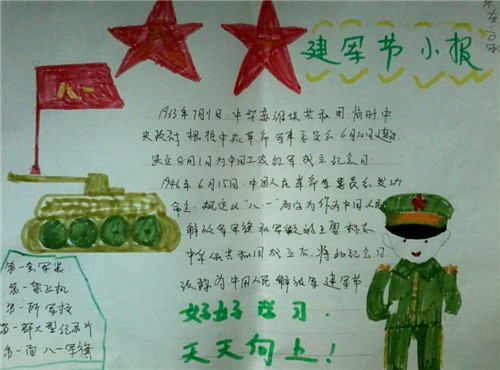 建军节小报
八一
1933年7月1日，中华苏维埃共和国临时中
央政府根据中央革命军事委员会6月30日建议，
决定8月1日为中国工农红军成立纪念日。
1946年6月15日，中国人民革命军事委员会发动
命令，规定以"八一"两字为作为中国人民
解放军军旗和军徽的主要标志
中华人民共和国成立后，将此纪念日
改称为中国人民解放军建军节
第一套军装
第一架飞机
第一所军校
第一部大型纪录片
第一面八一军旗
好好学习
天天向上！